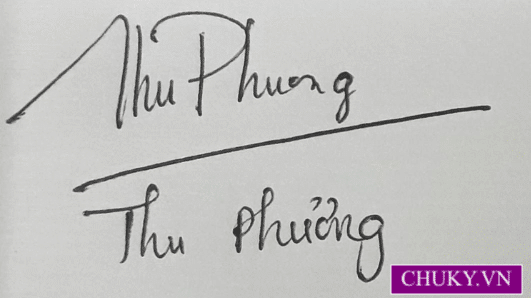 Thu Phuong
Thu Phưởng
CHUKY.VN